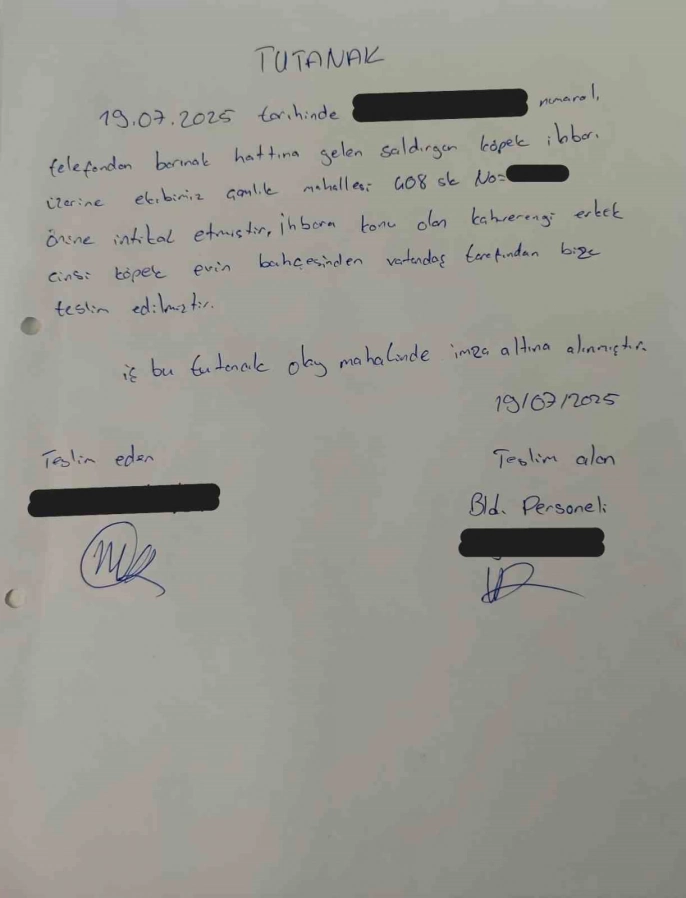 TUTANAK
19.07.2025 tarihinde numaralı
telefondan barınak hattına gelen saldırgan köpek ihbarı
üzerine ekibimiz Çamlık mahallesi 408 sk No=
önüne intikal etmiştir, ihbara konu olan kahverengi erkek
cinsi köpek evin bahçesinden vatandaş tarafından bize
teslim edilmiştir.
iş bu tutanak olay mahalinde imza altına alınmıştır.
19/07/2025
Teslim eden
Teslim alan
Bld. Personeli